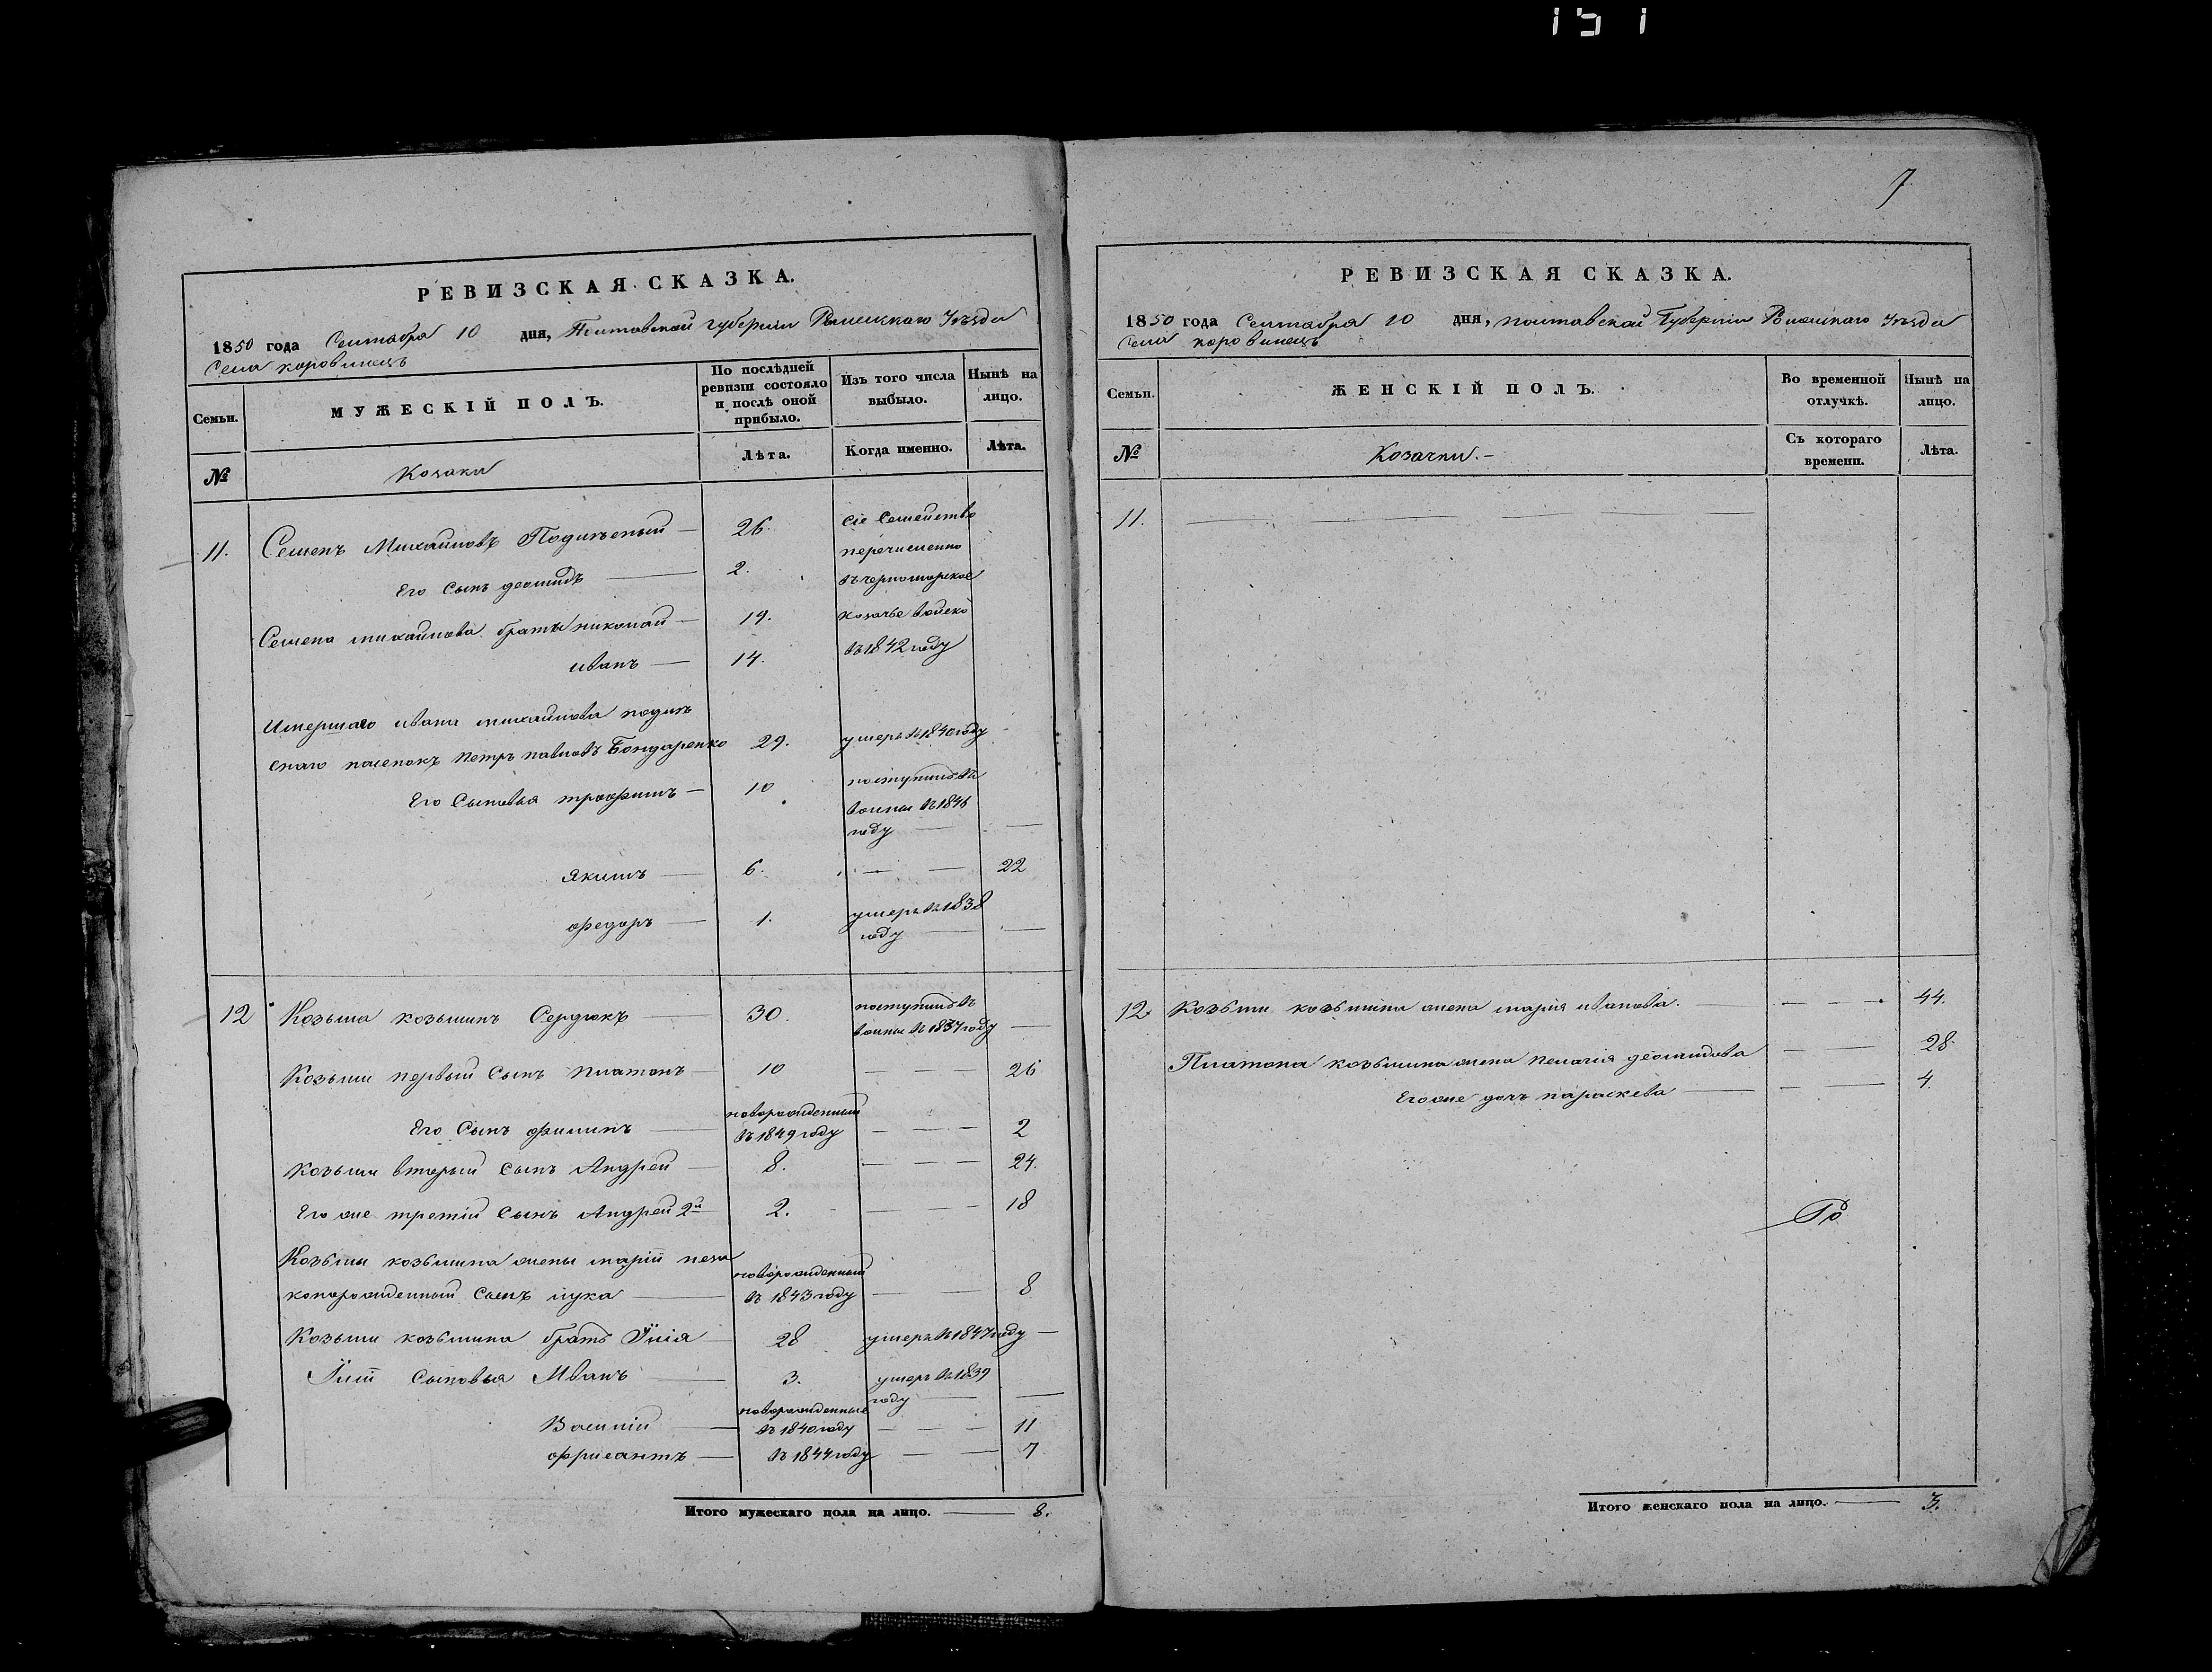 151
РЕВИЗСКАЯ СКАЗКА.
1850 года Сентября 10 дня, Полтавской губерніи Роменскаго Уѣзда
Села коровинецъ
Семьи.
МУЖЕСКІЙ ПОЛЪ.
По послѣдней ревизіи состояло и послѣ оной прибыло.
Изъ того числа выбыло.
Нынѣ на лицо.
№
Козаки
Лѣта.
Когда именно.
Лѣта.
11. Семенъ Михайловъ 26. сіе Семейство
перечисленно
Его Сынъ деомидъ 2. въ черноморское
Семена михайлова братья николай 19. козачье войско
иванъ 14. въ 1842 году
Умершаго ивана михайлова
петръ павловъ Бондаренко 29. умеръ въ 1840 году
Его Сыновья трофимъ 10 поступилъ въ
воины въ 1846
году
якимъ 6. 22
федоръ 1. умеръ въ 1838
году
12 Козьма козьминъ Сердюкъ 30. поступилъ въ
воины въ 1837 году
Козьмы первый Сынъ платонъ 10 26
Его Сынъ филипъ новорожденный
въ 1849 году 2
Козьмы вторый Сынъ Андрей 8. 24.
Его же третій Сынъ Андрей 2й 2. 18
Козьмы козьмина жены маріи неза
конорожденный Сынъ лука новорожденный
въ 1843 году 8
Козьмы козьмина братъ Илія 28 умеръ въ 1847 году
Иліи Сыновья Иванъ 3. умеръ въ 1839
году
Василій новорожденные
въ 1840 году 11
въ 1844 году 7
Итого мужескаго пола на лицо. 8.
7
РЕВИЗСКАЯ СКАЗКА.
1850 года Сентября 10 дня, полтавской Губерніи Роменскаго Уѣзда
Села коровинецъ
Семьи.
ЖЕНСКІЙ ПОЛЪ.
Во временной отлучкѣ.
Нынѣ на лицо.
№
Козачки.
Съ котораго времени.
Лѣта.
11.
12. Козьмы козьмина жена марія иванова. 44.
Платона козьмина жена пелагія деомидова 28.
Его же дочь параскева 4.
Итого женскаго пола на лицо. 3.